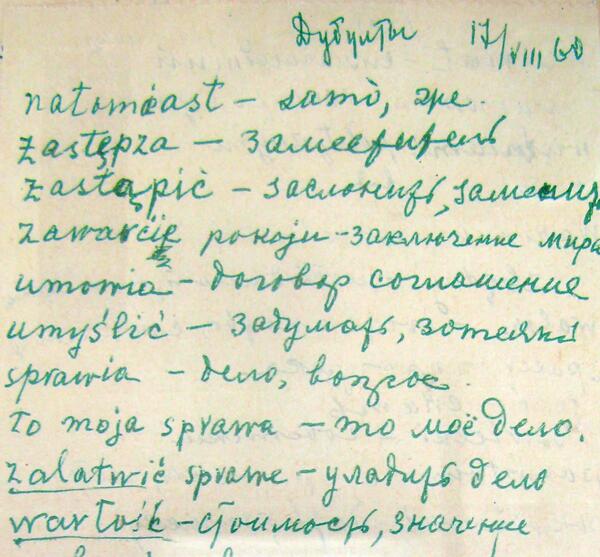 Дубулты 17/VIII 60
natomiast – зато, же
zastępza – заместитель
zastąpić – заслонить, заменить
zawarcię pokoju – заключение мира
umowia – договор соглашение
umyślić – задумать, затеять
sprawia – дело, вопрос
to moja sprawa – то моё дело.
załatwić sprawe – уладить дело
wartość – стоимость, значение